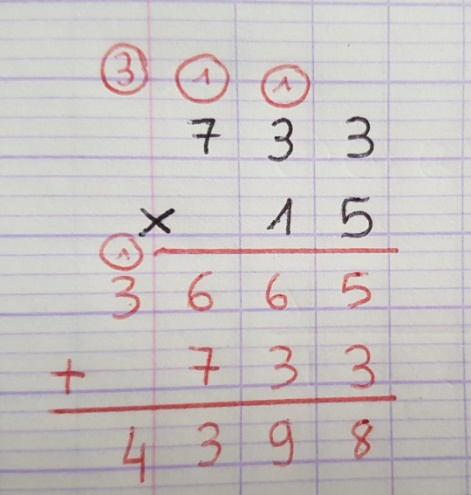 3 1 1
7 3 3
× 1 5
1
3 6 6 5
+ 7 3 3
4 3 9 8